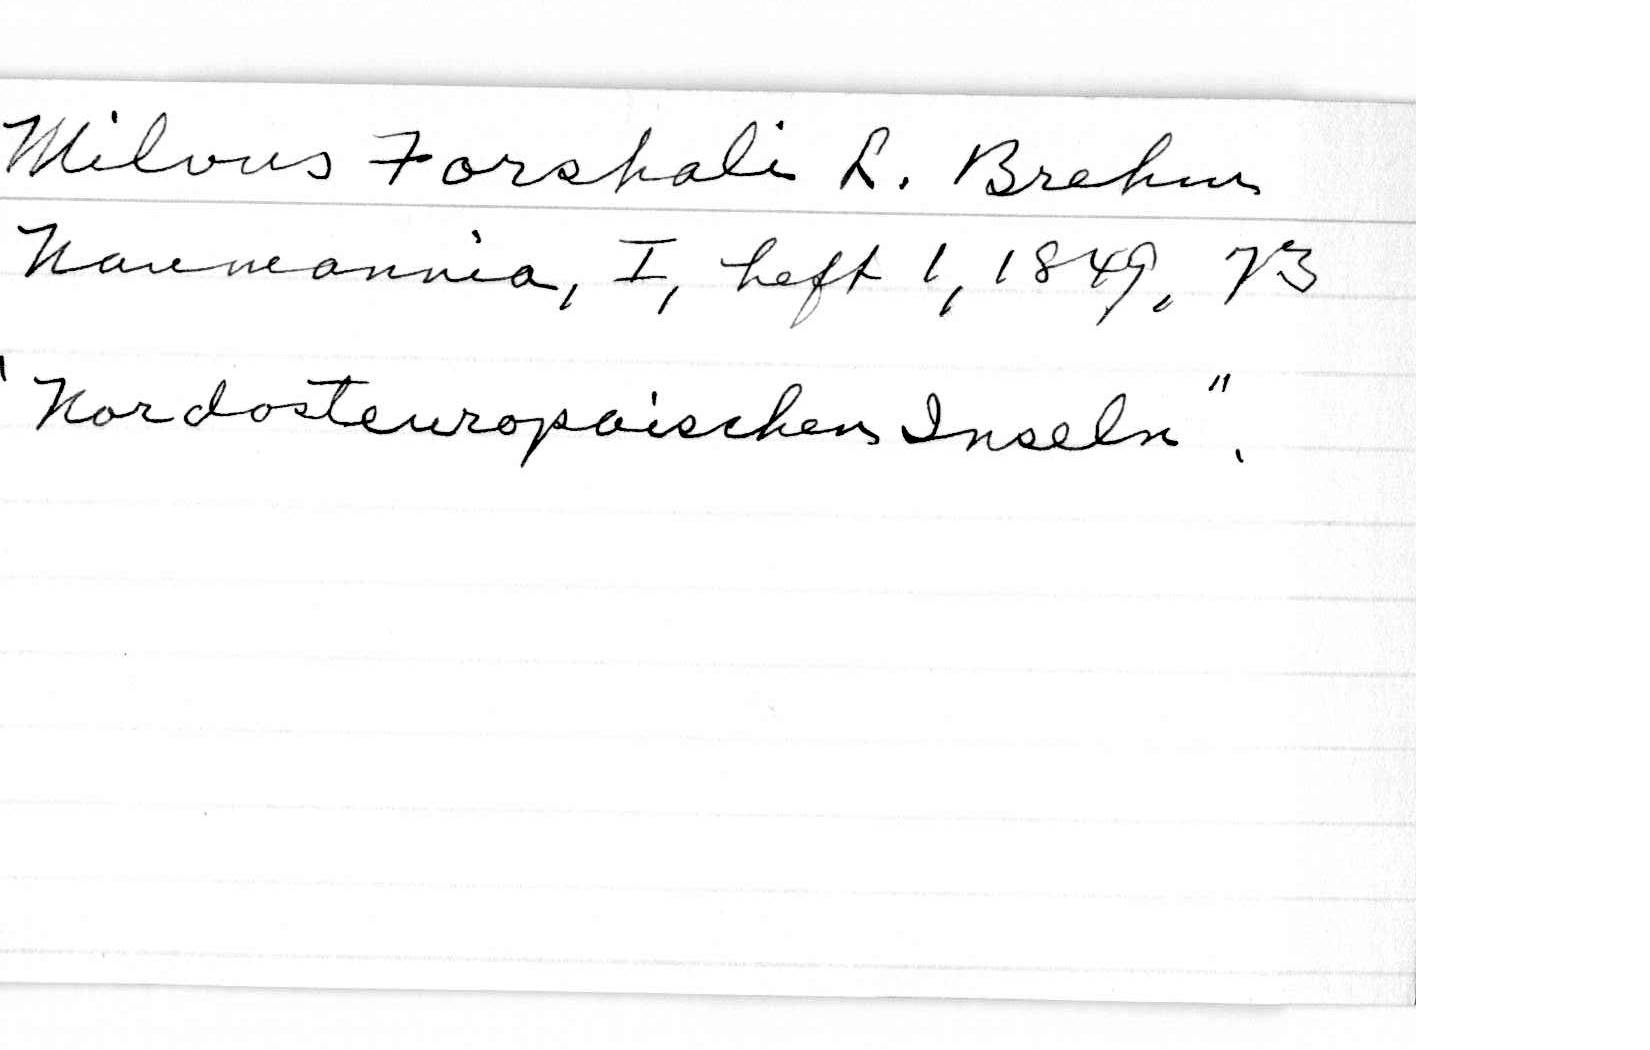 Milvus Forshali L. Brehm
Naumannia, I, heft 1, 1849, 73
"Nordosteuropaischen Inseln".